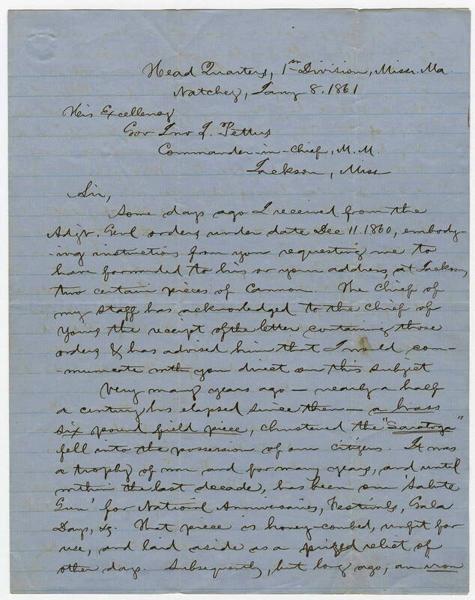 Head Quarters, 1st Division, Miss. Ma
Natchez, Jany 8. 1861
His Excellency
Gov Jno J. Pettus
Commander-in-chief, M. M.
Jackson, Miss
Sir,
Some days ago I received from the
Adjt. Genl orders under date Dec 11. 1860, embody-
ing instructions from you requesting me to
have forwarded to his or your address at Jackson
two certain pieces of Cannon. The Chief of
my staff has acknowledged to the Chief of
yours the receipt of the letter containing those
orders & has advised him that I would com-
municate with you direct on this subject
Very many years ago — nearly a half
a century has elapsed since then — a brass
six pound field piece, christened the "Saratoga"
fell into the possession of our citizens. It was
a trophy of war and for many years, and until
within the last decade, has been our 'Salute
Gun' for National Anniversaries, Festivals, Gala
Days, &c. That piece is honey-combed, unfit for
use, and laid aside as a prized relict of
other days. Subsequently, but long ago, an iron